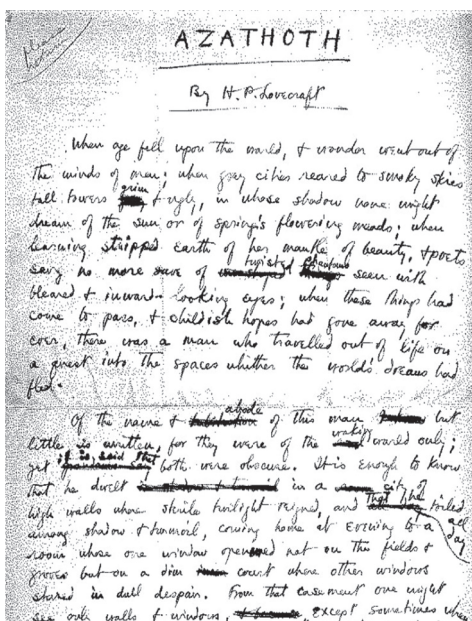 AZATHOTH
By H. P. Lovecraft
When age fell upon the world, & wonder went out of
the minds of men; when grey cities reared to smoky skies
tall towers grim & ugly, in whose shadow none might
dream of the sun or of spring's flowering meads; when
learning stripped earth of her mantle of beauty, & poets
sang no more save of twisted phantoms seen with
bleared & inward-looking eyes; when these things had
come to pass, & childish hopes had gone away for
ever, there was a man who travelled out of life on
a quest into the spaces whither the world's dreams had
fled.
Of the name & abode of this man but
little is written, for they were of the waking world only;
yet it is said that both were obscure. It is enough to know
that he dwelt in a city of
high walls where sterile twilight reigned, and that he toiled all day
among shadow & turmoil, coming home at evening to a
room whose one window opened not on the fields &
groves but on a dim court where other windows
stared in dull despair. From that casement one might
see only walls & windows, except sometimes when